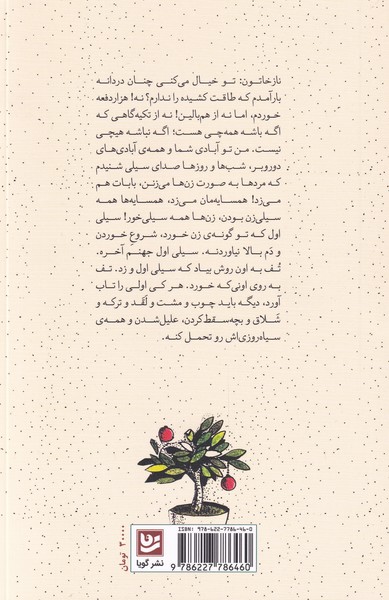 نازخاتون: تو خیال می‌کنی چنان دردانه
بارآمدم که طاقت کشیده را ندارم؟ نه! هزاردفعه
خوردم، اما نه از هم‌بالین! نه از تکیه‌گاهی که
اگه باشه همه‌چی هست؛ اگه نباشه هیچی
نیست. من تو آبادی شما و همه‌ی آبادی‌های
دوروبر، شب‌ها و روزها صدای سیلی شنیدم
که مردها به صورت زن‌ها می‌زنن، بابات هم
می‌زد! همسایه‌مان می‌زد، همسایه‌ها همه
سیلی‌زن بودن، زن‌ها همه سیلی‌خور! سیلی
اول که تو گونه‌ی زن خورد، شروع خوردن
و دَم بالا نیاوردنه. سیلی اول جهنم آخره.
تُف به اون روش بیاد که سیلی اول و زد. تف
به روی اونی‌که خورد. هر کی اولی را تاب
آورد، دیگه باید چوب و مشت و لَقَد و ترکه و
شَلاق و بچه‌سقط‌کردن، علیل‌شدن و همه‌ی
سیاه‌روزی‌اش رو تحمل کنه.
ISBN: 978-622-7786-46-0
9 786227 786460
نشر گویا
۳۰۰۰۰ تومان